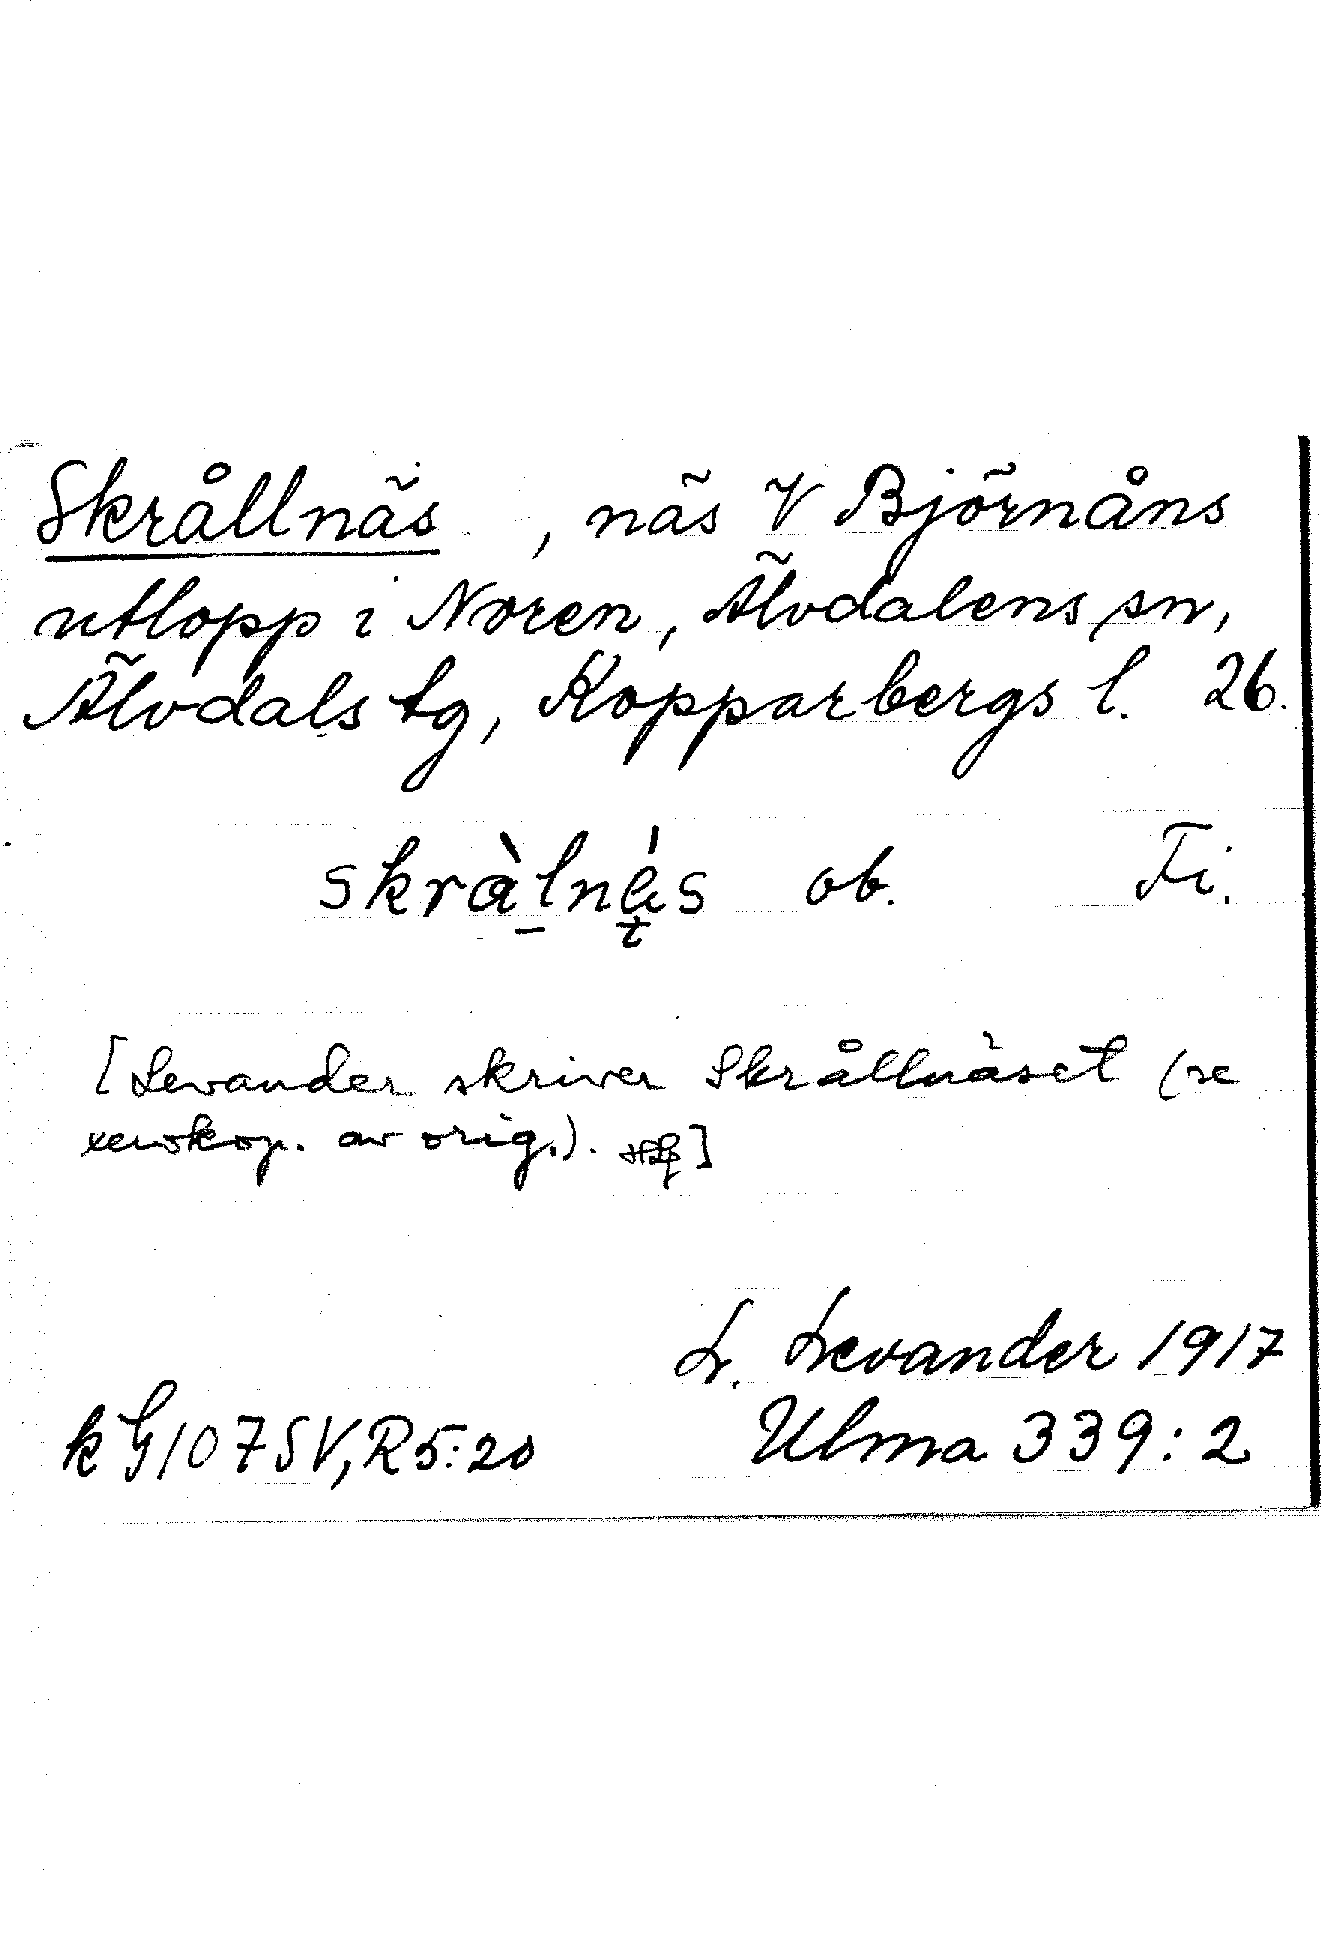 Skrållnäs , näs V Björnåns
utlopp i Noren, Älvdalens sn,
Älvdals tg, Kopparbergs l. 26.
skràlnä́s ob. Fi.
[Levander skriver Skrållnäset (se
xerokop. av orig.). ]
L. Levander 1917
k G1075V, R5:20 Ulma 339:2